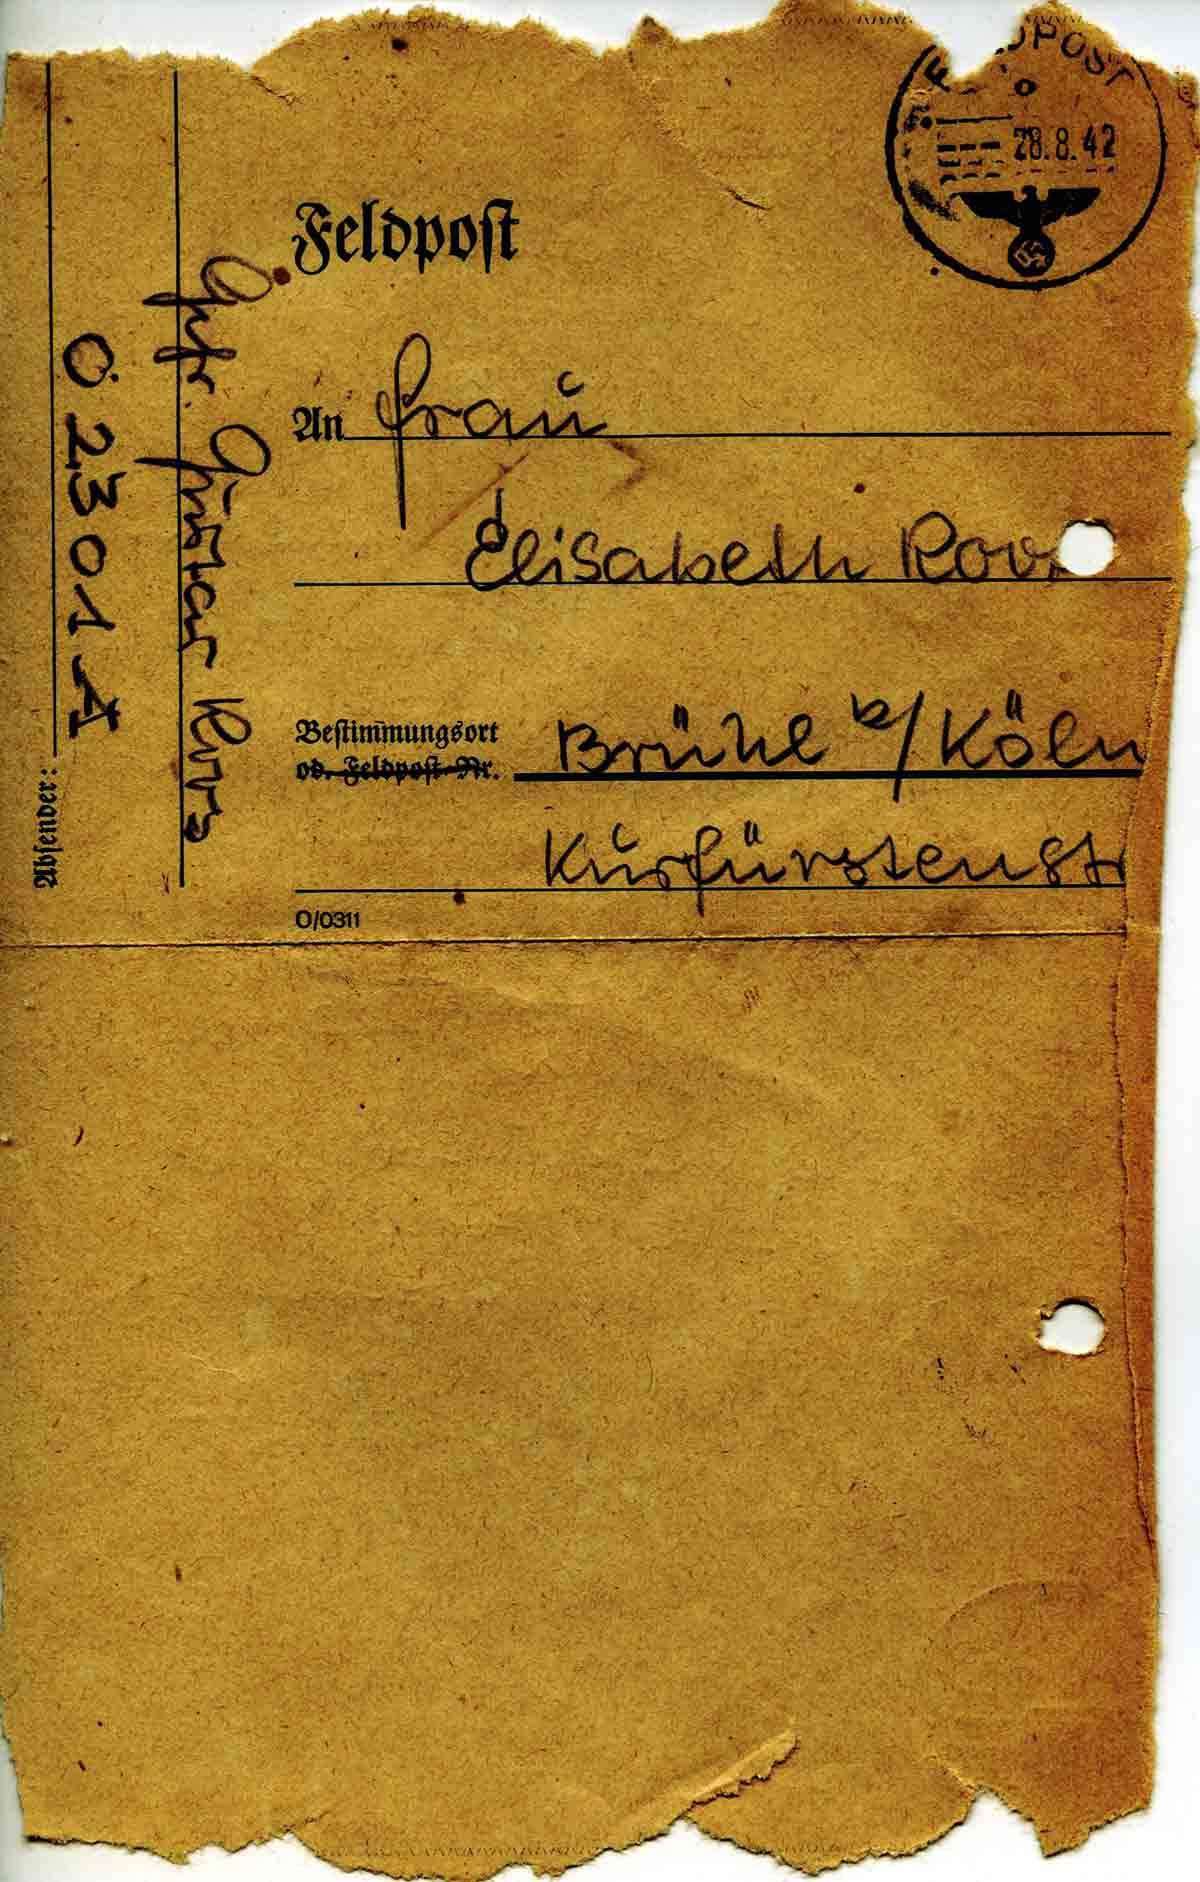 POST
28.8.42
Feldpost
An Frau
Elisabeth Roo
Bestimmungsort
od. Feldpost-Nr.
Brühl b/Köln
Kurfürstenstr
O/0311
Absender:
Gefr. Gustav Roos
02301A